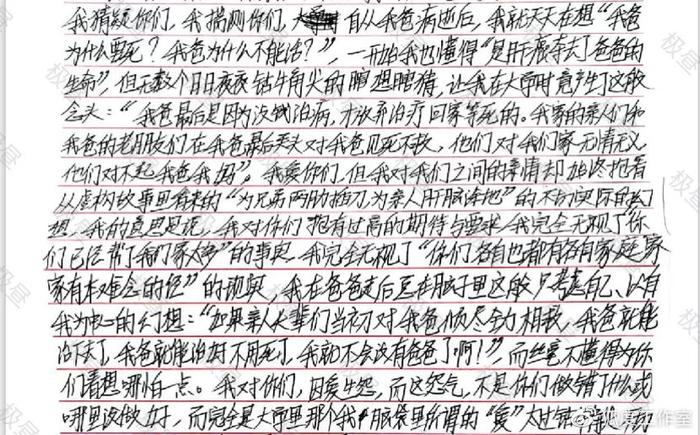 我猜疑你们,我揣测你们,自从我爸病逝后,我就天天在想“我爸
为什么要死?我爸为什么不能活?”,一开始我也懂得“是肝癌夺去了爸爸的
生命”,但无数个日日夜夜钻牛角尖的瞎想瞎猜,让我在大学时竟产生了这般
念头:“我爸最后是因为没钱治病,才放弃治疗回家等死的。我家的亲人们和
我爸的老朋友们在我爸最后关头对我爸见死不救,他们对我们家无情无义
他们对不起我爸我妈”。我爱你们,但我对我们之间的亲情却始终抱着
从虚构故事里看来的“为兄弟两肋插刀为亲人肝脑涂地”的不切实际的幻
想。我的意思是说,我对你们抱有过高的期待与要求,我完全无视了“你
们已经帮了我们家太多”的事实。我完全无视了“你们各自也都有各自家庭,家
家有本难念的经”的现实,我在爸爸走后竟在脑子里这般只考虑自己、以自
我为中心的幻想:“如果亲人长辈们当初对我爸倾尽全力相救,我爸就能
治下去了,我爸就能治好不用死了,我就不会没有爸爸了啊!”,而丝毫不懂得为你
们着想哪怕一点。我对你们,因爱生怨,而这怨气,不是你们做错了什么或
哪里没做好,而完全是大学里那个我脑袋里所谓的“爱”太过
极昼工作室
极昼